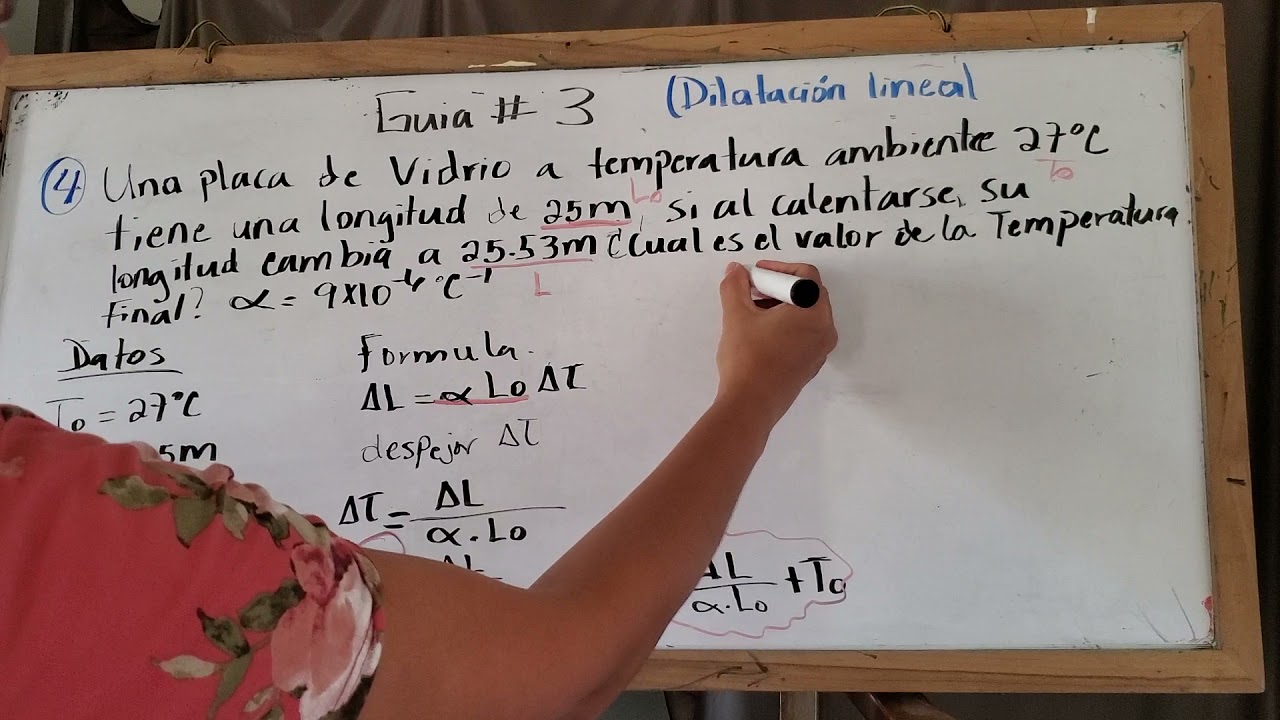 Guia # 3 (Dilatación lineal
④ Una placa de Vidrio a temperatura ambiente 27°C
To
tiene una longitud de 25m, si al calentarse, su
Lo
longitud cambia a 25.53m ¿Cual es el valor de la Temperatura
L
final? α = 9x10⁻⁶ °C⁻¹
Datos
To = 27°C
5m
Formula.
ΔL = α Lo ΔT
despejar ΔT
ΔT = ΔL
α . Lo
ΔL
ΔL + To
α . Lo